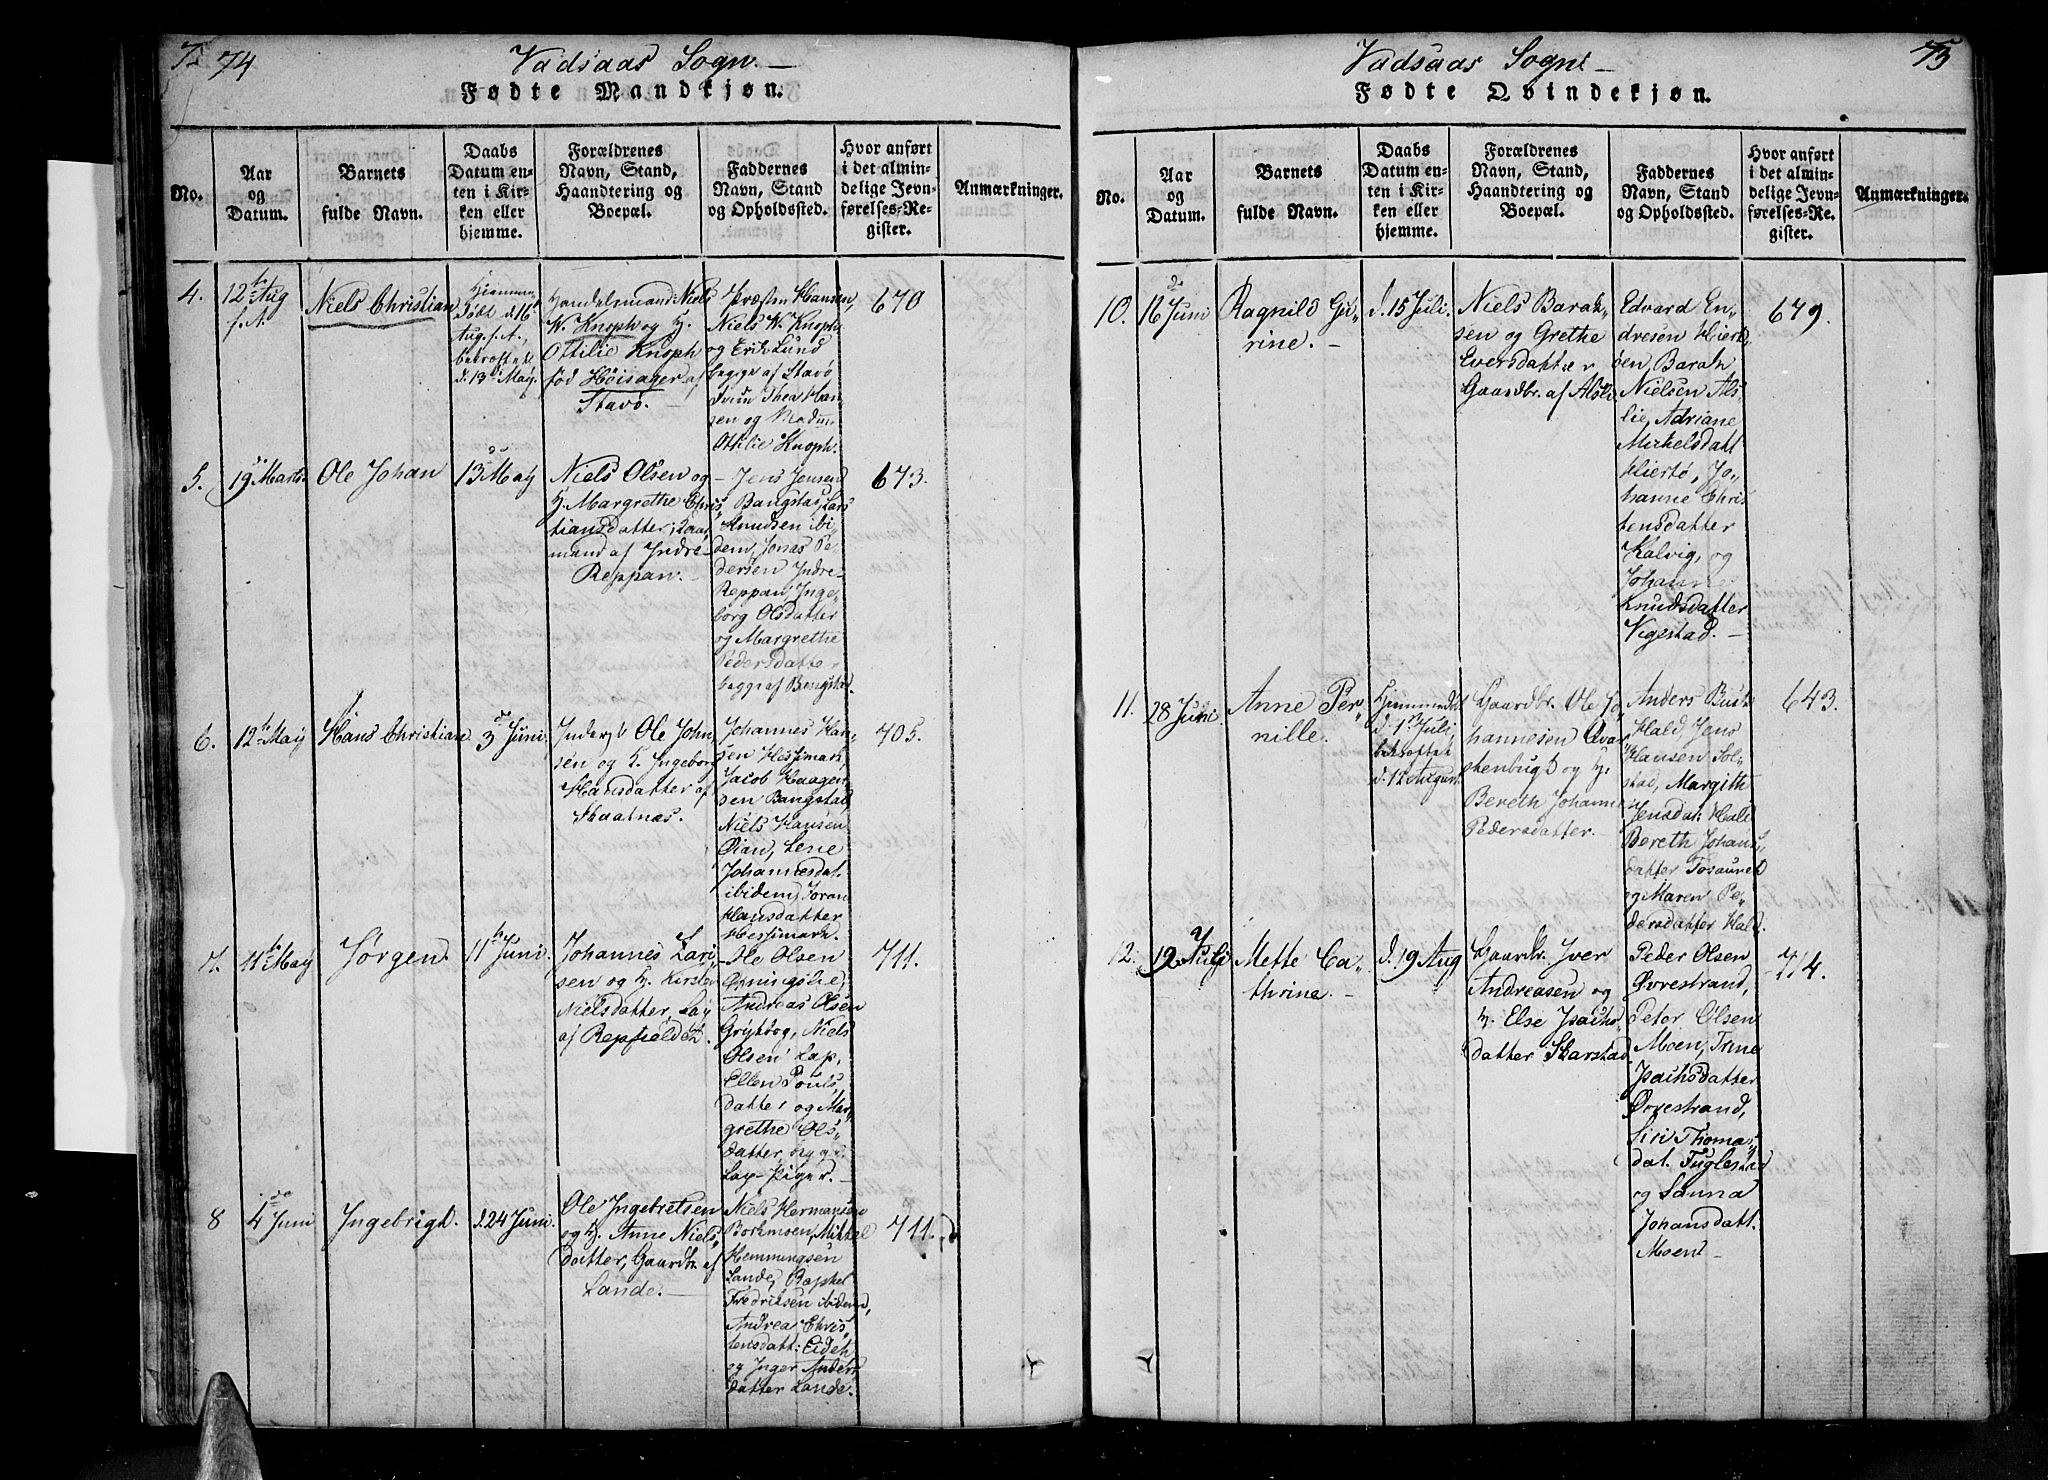 74
Vadsaas Sogn.
Fødte Mandkjøn.
No.
Aar
og
Datum.
Barnets
fulde Navn.
Daabs
Datum en-
ten i Kir-
ken eller
hjemme.
Forældrenes
Navn, Stand,
Haandtering og
Boepæl.
Faddernes
Navn, Stand
og Opholdssted.
Hvor anført
i det almin-
delige Jevn-
førelses-Re-
gister.
Anmærkninger.
4.
12te Aug
f. A.
Niels Christian
Hjemme
døbt d. 16
Aug. f. A.,
bekræftet
d. 13de May.
Handelsmand Niels
W. Knoph og H.
Ottilie Knoph
fød Høisager af
Stavø.
Præsten Hansen,
Niels W. Knoph
og Erik Lund
begge af Stavø
Thea Han
sen og Madm
Ottilie Knoph.
670
5.
19 Marts
Ole Johan
13de May
Niels Olsen og
H. Margrethe Chris„
tiansdatter,
mand af Indre-
Reppan.
Jens Jensen
Bangstad, Lars
Knudsen ibi
dem, Jonas Pe
dersen Indre-
Reppan, Inge„
borg Olsdatter
og Margrethe
Pedersdatter
begge af Bengstad.
673.
6.
12te May
Hans Christian
3de Juni.
Inderst Ole John„
sen og H. Ingeborg
Hansdatter af
Skaatnas.
Johannes Han-
sen Hessmark,
Jacob Haagen
sen Bangstad
Niels Hansen
Øian, Lene
Johannesdat.
ibidem, Joran
Hansdatter
Hessmark.
705.
7.
11te May
Jørgen.
11te Juni.
Johannes Lari
sen og H. Kirsten
Nielsdatter, Lap
af Repfielden.
Ole Olsen
Andreas Olsen
Grytbog, Niels
Olsen Lap,
Ellen Pouls„
datter og Mar„
grethe Ols„
datter, begge
Lap-Piger.
711.
8
4de Juni
Ingebrigt.
d. 24 Juni.
Ole Ingebretsen
og H. Anne Niels„
datter, Gaardbr. af
Lande.
Niels Hermansen
Borkmoen, Mikkel
Hemmingsen
Lande, Raphel
Fredriksen ibidem,
Andrea Chris„
tensdatt: Eideh
og Inger Anders
datter Lande.
711.
73
Vadsaas Sogn
Fødte Qvindekjøn.
No.
Aar
og
Datum.
Barnets
fulde Navn.
Daabs
Datum en-
ten i Kir-
ken eller
hjemme.
Forældrenes
Navn, Stand,
Haandtering og
Boepæl.
Faddernes
Navn, Stand
og Opholdssted.
Hvor anført
i det almin-
delige Jevn-
førelses-Re-
gister.
Anmærkninger.
10.
16de Juni
Ragnild Gu„
rine.
d. 15 Juli.
Niels Barak„
sen og Grethe
Eversdatter
Gaardbr. af
Edvard En„
dresen Hiort„
øen, Barak
Nielsen Als
lie, Adriane
Mikkelsdatt
Hiertø, Jo„
hanne Chris
tensdatter
Kalvig, og
Johanne
Knudsdatter
Vegestad.
679.
11.
28 Juni.
Anne Per„
nille.
Hjemmedøbt
d. 1ste Juli,
bekræftet
d. 12 August.
Gaardbr. Ole Jo
hannesen Qvar
stenbugt og H.
Bereth Johanne
Pedersdatter.
Anders
Hald, Jens
Hansen Sol„
stad, Margith
Jensdat: Hald
Bereth Johans„
datter Tosaunet
og Maren Pe„
dersdatter Hald.
643.
12.
12 Juli
Mette Ca„
thrine.
d. 19 Aug
Gaardbr. Iver
Andreasen og
H. Else Isachs„
datter Skarstad
Peder Olsen
Øvrestrand,
Peter Olsen
Moen, Trine
Isachsdatter
Øvrestrand,
Siri Thomas„
dat. Fuglestad
og Sanna
Johansdatt.
Moen
714.